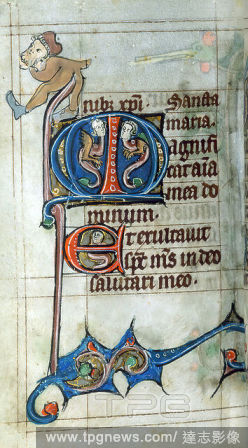 nubi xpi. Sancta
maria.
Magnifi
cat aīa
mea do
minum.
Et exultavit
sp̄c m̄s in deo
salutari meo.
TPG
www.tpgnews.com/達志影像